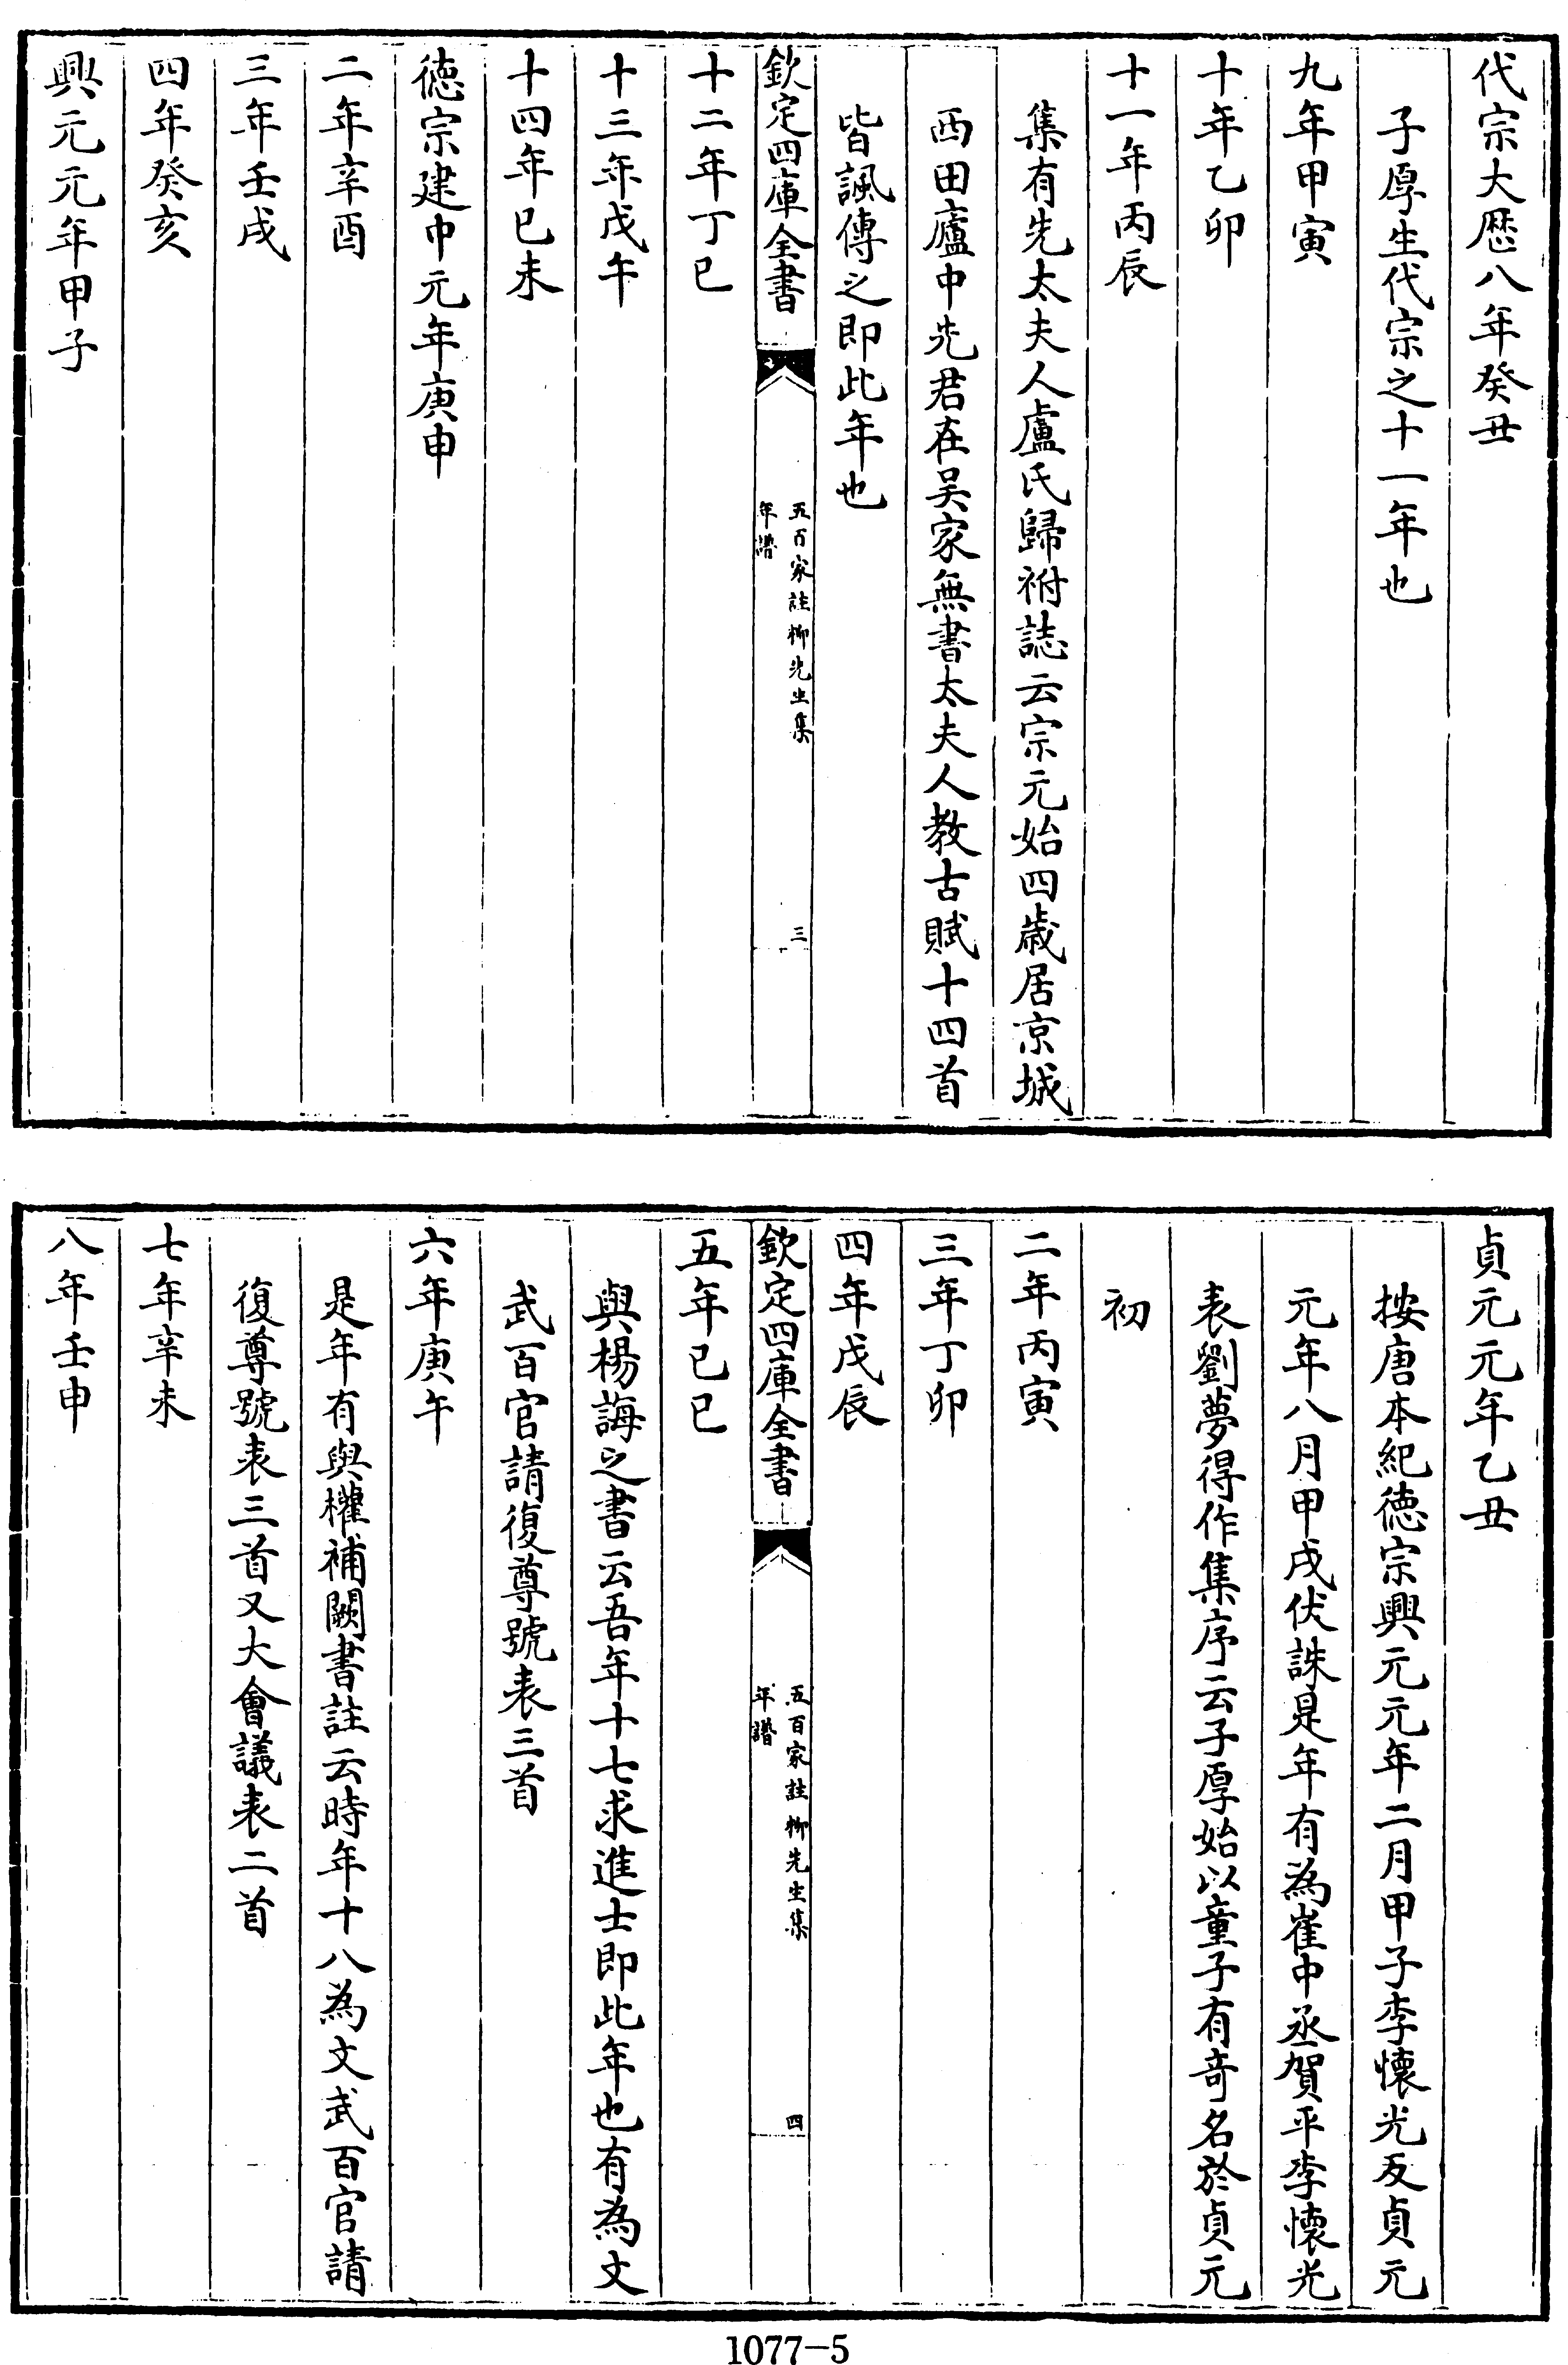 代宗大歴八年癸丑
子厚生代宗之十一年也
九年甲寅
十年乙卯
十一年丙辰
集有先太夫人盧氏歸祔誌云宗元始四歳居京城
西田廬中先君在吴家無書太夫人教古賦十四首
皆諷傳之即此年也
欽定四庫全書
五百家註柳先生集
年譜
三
十二年丁巳
十三年戊午
十四年已未
徳宗建中元年庚申
二年辛酉
三年壬戌
四年癸亥
興元元年甲子
貞元元年乙丑
按唐本紀徳宗興元元年二月甲子李懷光反貞元
元年八月甲戌伏誅是年有為崔中丞賀平李懷光
表劉夢得作集序云子厚始以童子有竒名於貞元
初
二年丙寅
三年丁卯
四年戊辰
欽定四庫全書
五百家註柳先生集
年譜
四
五年已巳
與楊誨之書云吾年十七求進士即此年也有為文
武百官請復尊號表三首
六年庚午
是年有與權補闕書註云時年十八為文武百官請
復尊號表三首又大會議表二首
七年辛未
八年壬申
1077-5